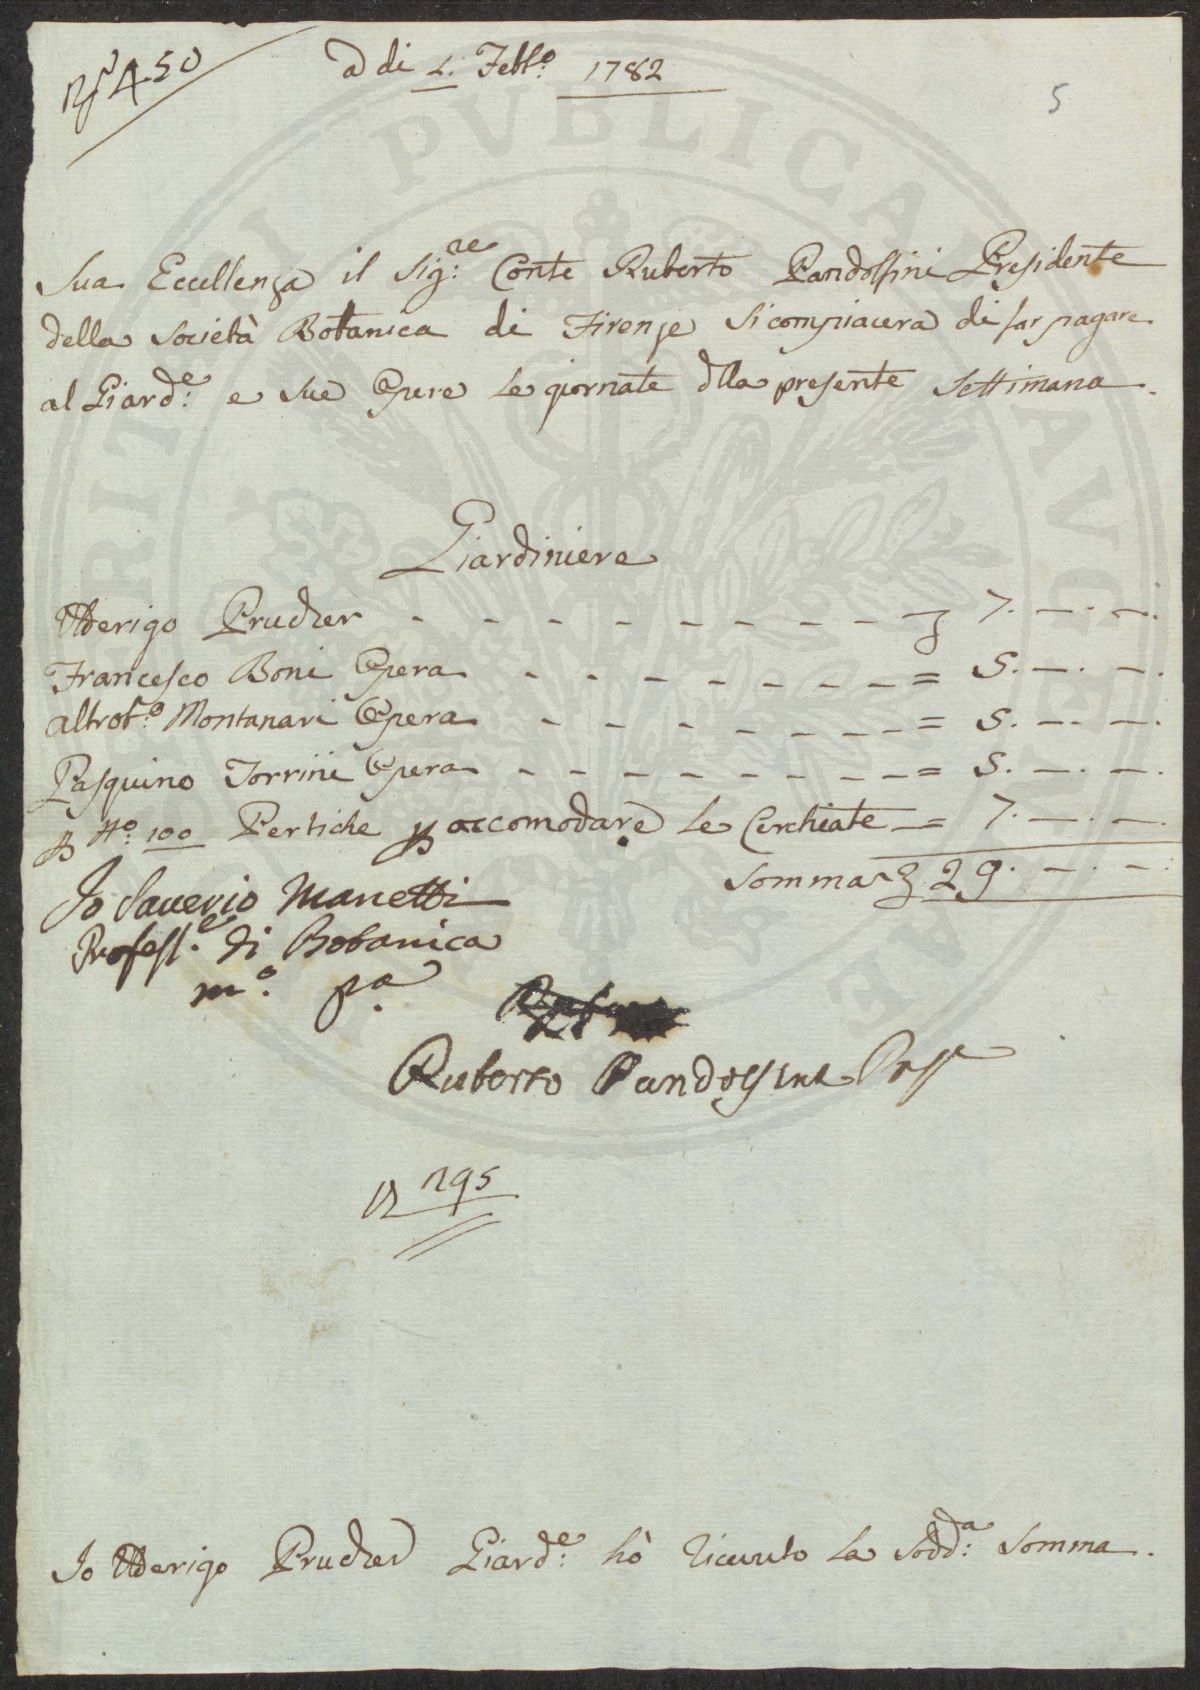 N.º 450
a di 2. Febb.º 1782
5
Sua Eccellenza il Sig.re Conte Ruberto Pandolfini Presidente
della Società Botanica di Firenze si compiacerà di far pagare
al Giard.e e sue Opere le giornate dlla presente Settimana.
Giardiniere
Ulderigo Prucher - - - - - - - - 7. —. —.
Francesco Boni Opera - - - - - - - = 5. —. —.
altro t.º Montanari Opera - - - - - - = 5. —. —.
Pasquino Torrini Opera - - - - - - - = 5. —. —.
p N.º 100 Pertiche p accomodare le Cerchiate — = 7. —. —.
Somma 29. —. —.
Io Saverio Manetti
Profess.e di Botanica
m.º p.a
Ruberto Pandolfini Pres.e
295
Io Ulderigo Prucher Giard.e hò ricevuto la Sodd.a Somma.